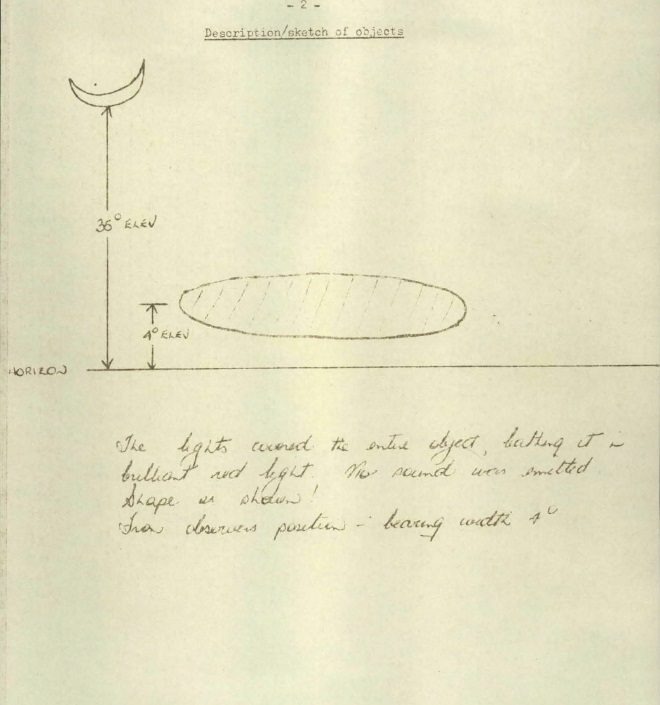 - 2 -
Description/sketch of objects
36° ELEV
4° ELEV
HORIZON
The lights covered the entire object, bathing it in
brilliant red light. No sound was emitted
Shape as shown!
From observers position - bearing width 4°